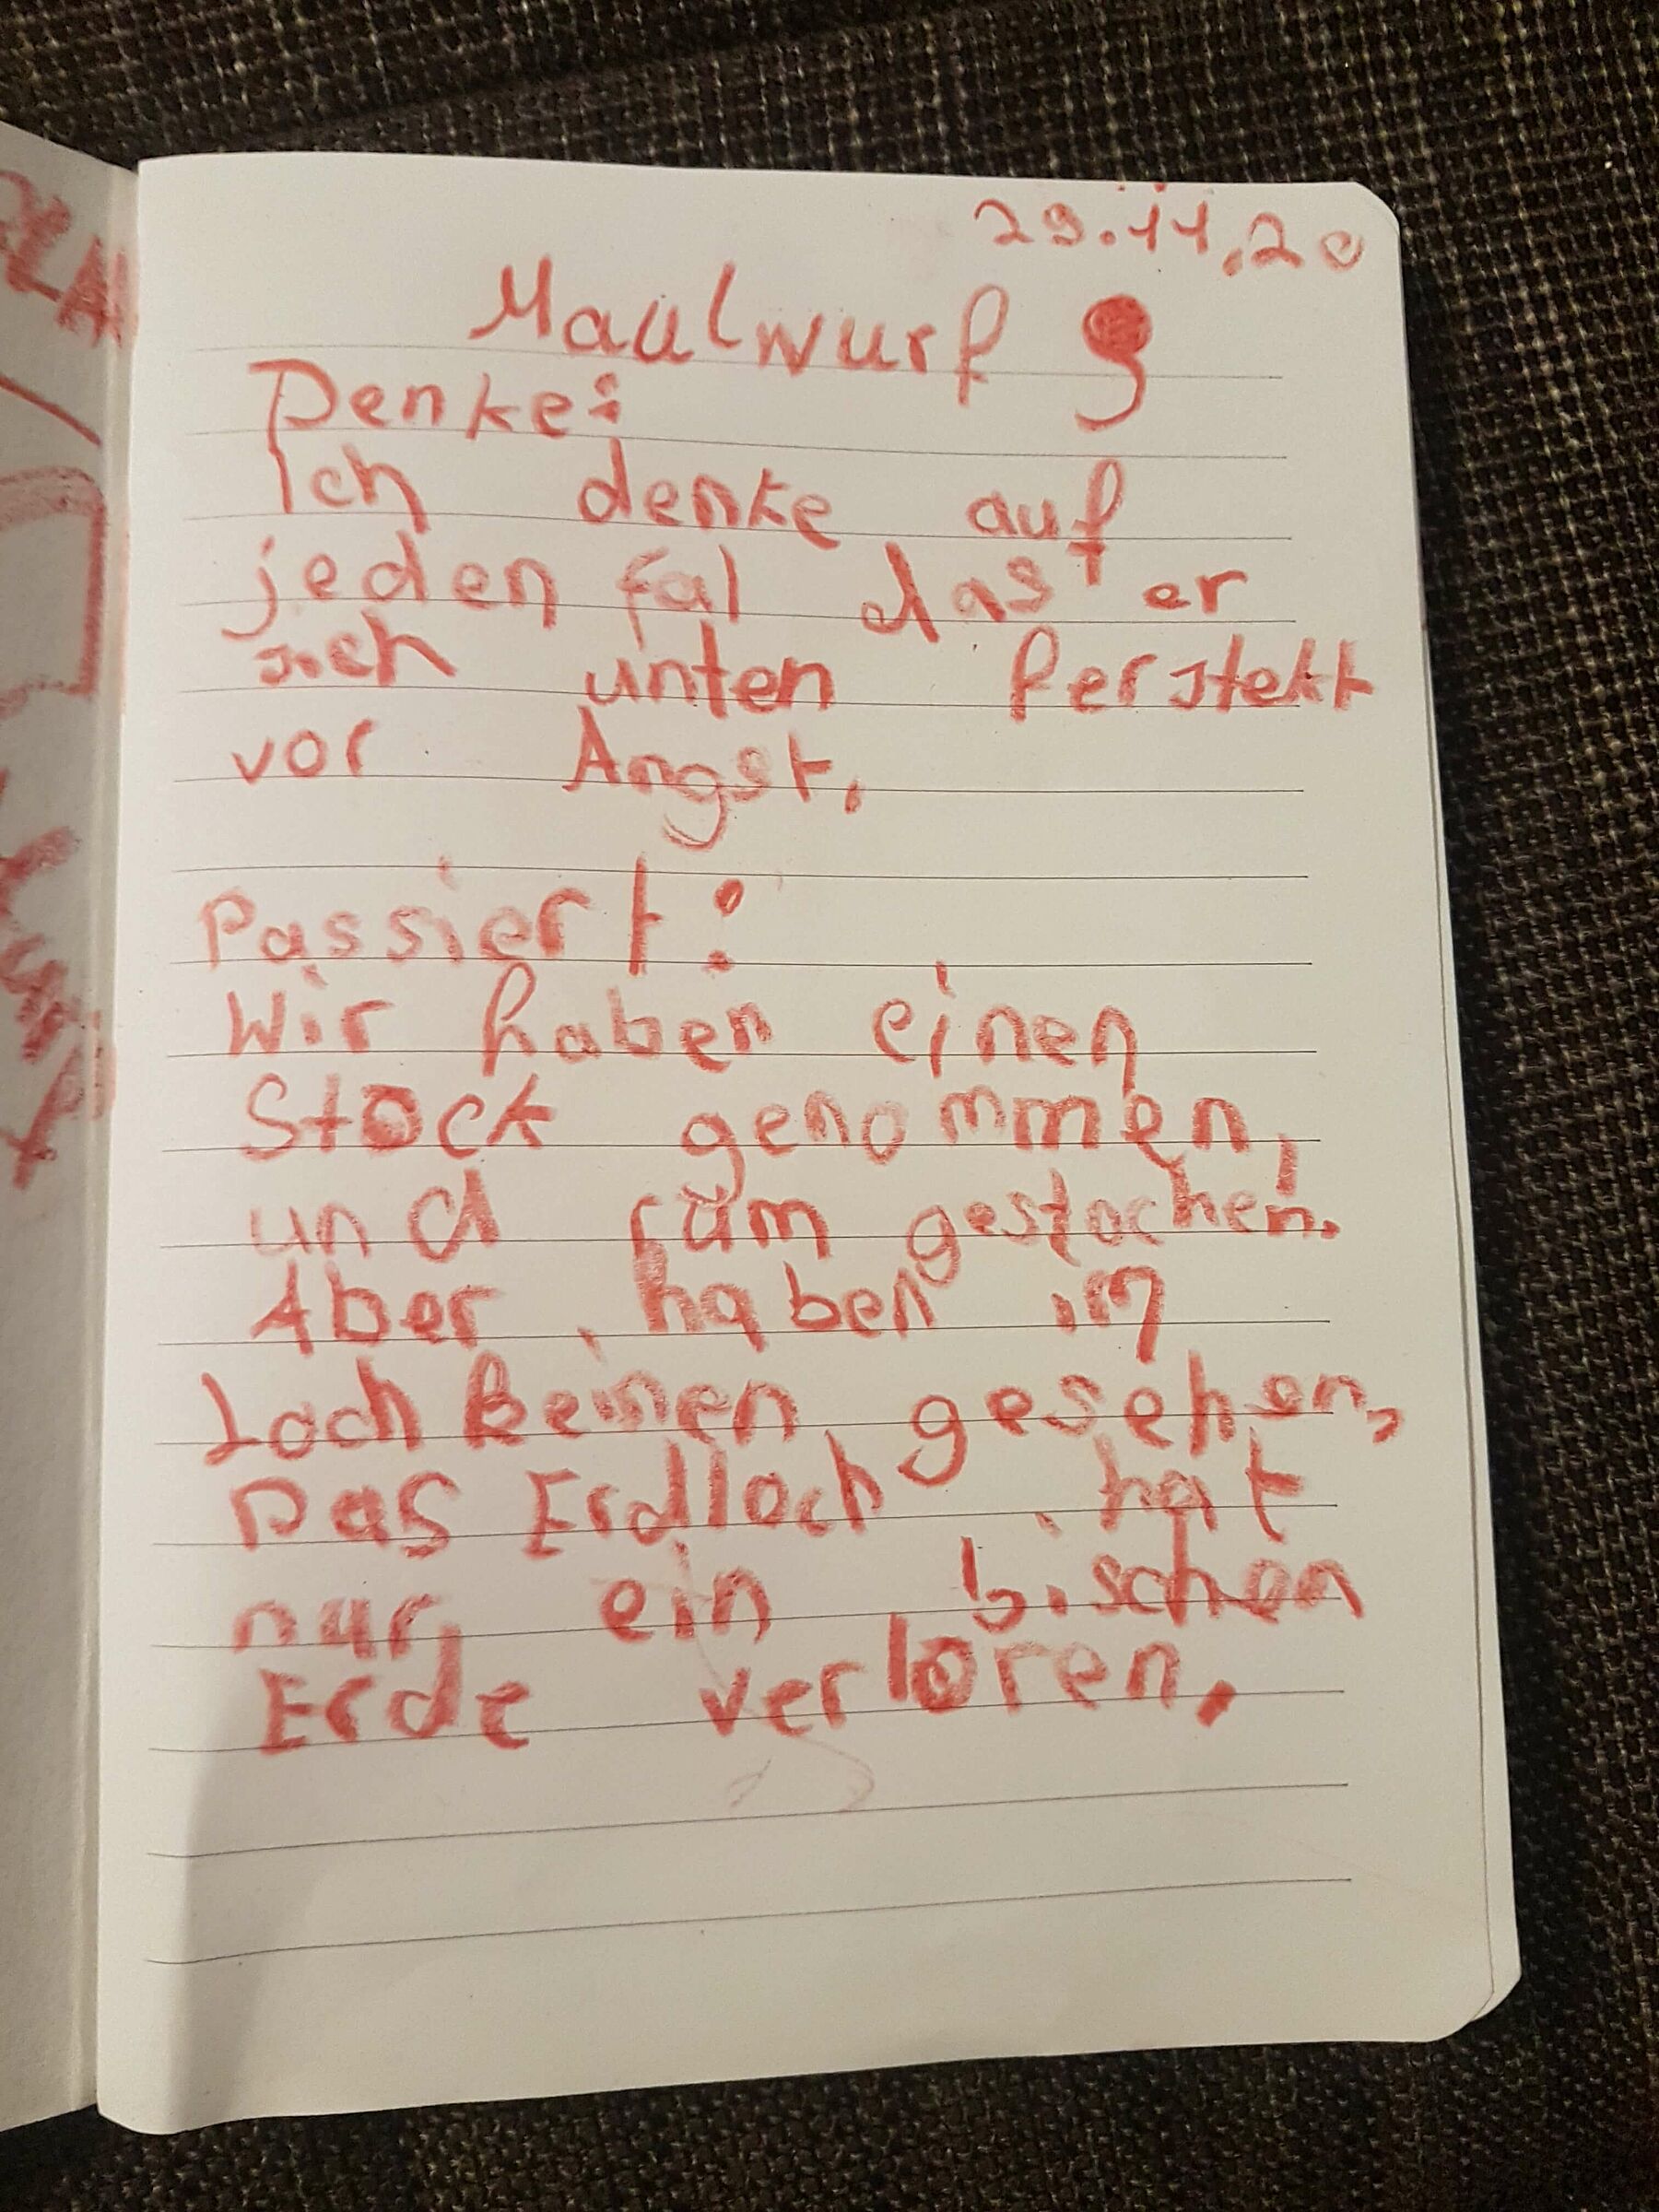 29.11.20
Maulwurf
Denke:
Ich denke auf
jeden fal das er
sich unten ferstekt
vor Angst.
Passiert:
Wir haben einen
Stock genommen,
und rum gestochen.
Aber haben im
Loch keinen gesehen,
Das Erdloch hat
nur ein bischen
Erde verloren.